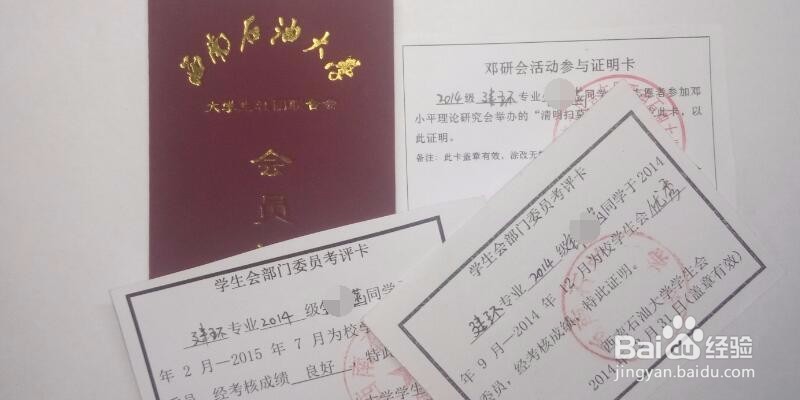 西南石油大学
大学生社团联合会
会
员
邓研会活动参与证明卡
2014级 建环 专业 同学 志愿者参加邓
小平理论研究会举办的“清明扫 此卡,以
此证明。
备注:此卡盖章有效,涂改无
学生会部门委员考评卡
建环专业2014级 同学于2014
年9月—2014年12月为校学生会优秀
委员,经考核成绩 特此证明。
西南石油大学学生会
2014 月31日(盖章有效)
学生会部门委员考评卡
建环专业2014级 同学
年2月—2015年7月为校学
委员,经考核成绩 良好,特此
大学学生
Baidu经验
jingyan.baidu.com